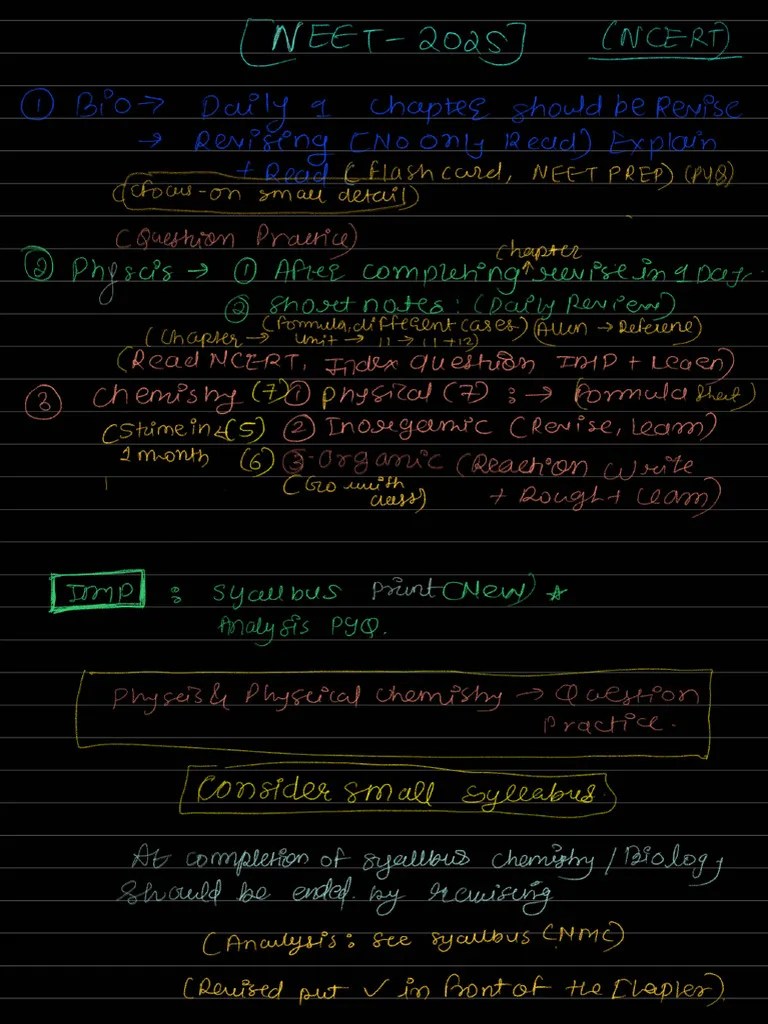 [NEET-2025] (NCERT)
① Bio → Daily 1 chapter should be Revise
→ Revising (No only Read) Explain
+ Read (flash card, NEET PREP) (PYQ)
(focus-on small detail)
(Question Practice)
chapter
② Physcis → ① After completing ↑ revise in 1 Day.
② short notes: (Daily Review)
(formula, different cases) (Allen → Referene)
(Chapter → unit → 11 → 11+12)
(Read NCERT, Index question IMP + Learn)
③ chemishy (7) ① physical (7) : → (formula sheet)
(5) ② Inorgarmic (Revise, learn)
1 month (6) ③ Organic (Reaction write
(Go with class) + Rough + learn)
IMP : syallbus print (New) ☆
Analysis PYQ.
Physcis & Physcical chemistry → Question
Practice.
Consider small syllabus.
At completion of syallbus chemistry / Biology
should be ended by revising
(Analysis: see syallbus (NMC)
(Revised put ✓ in front of the Chapter)